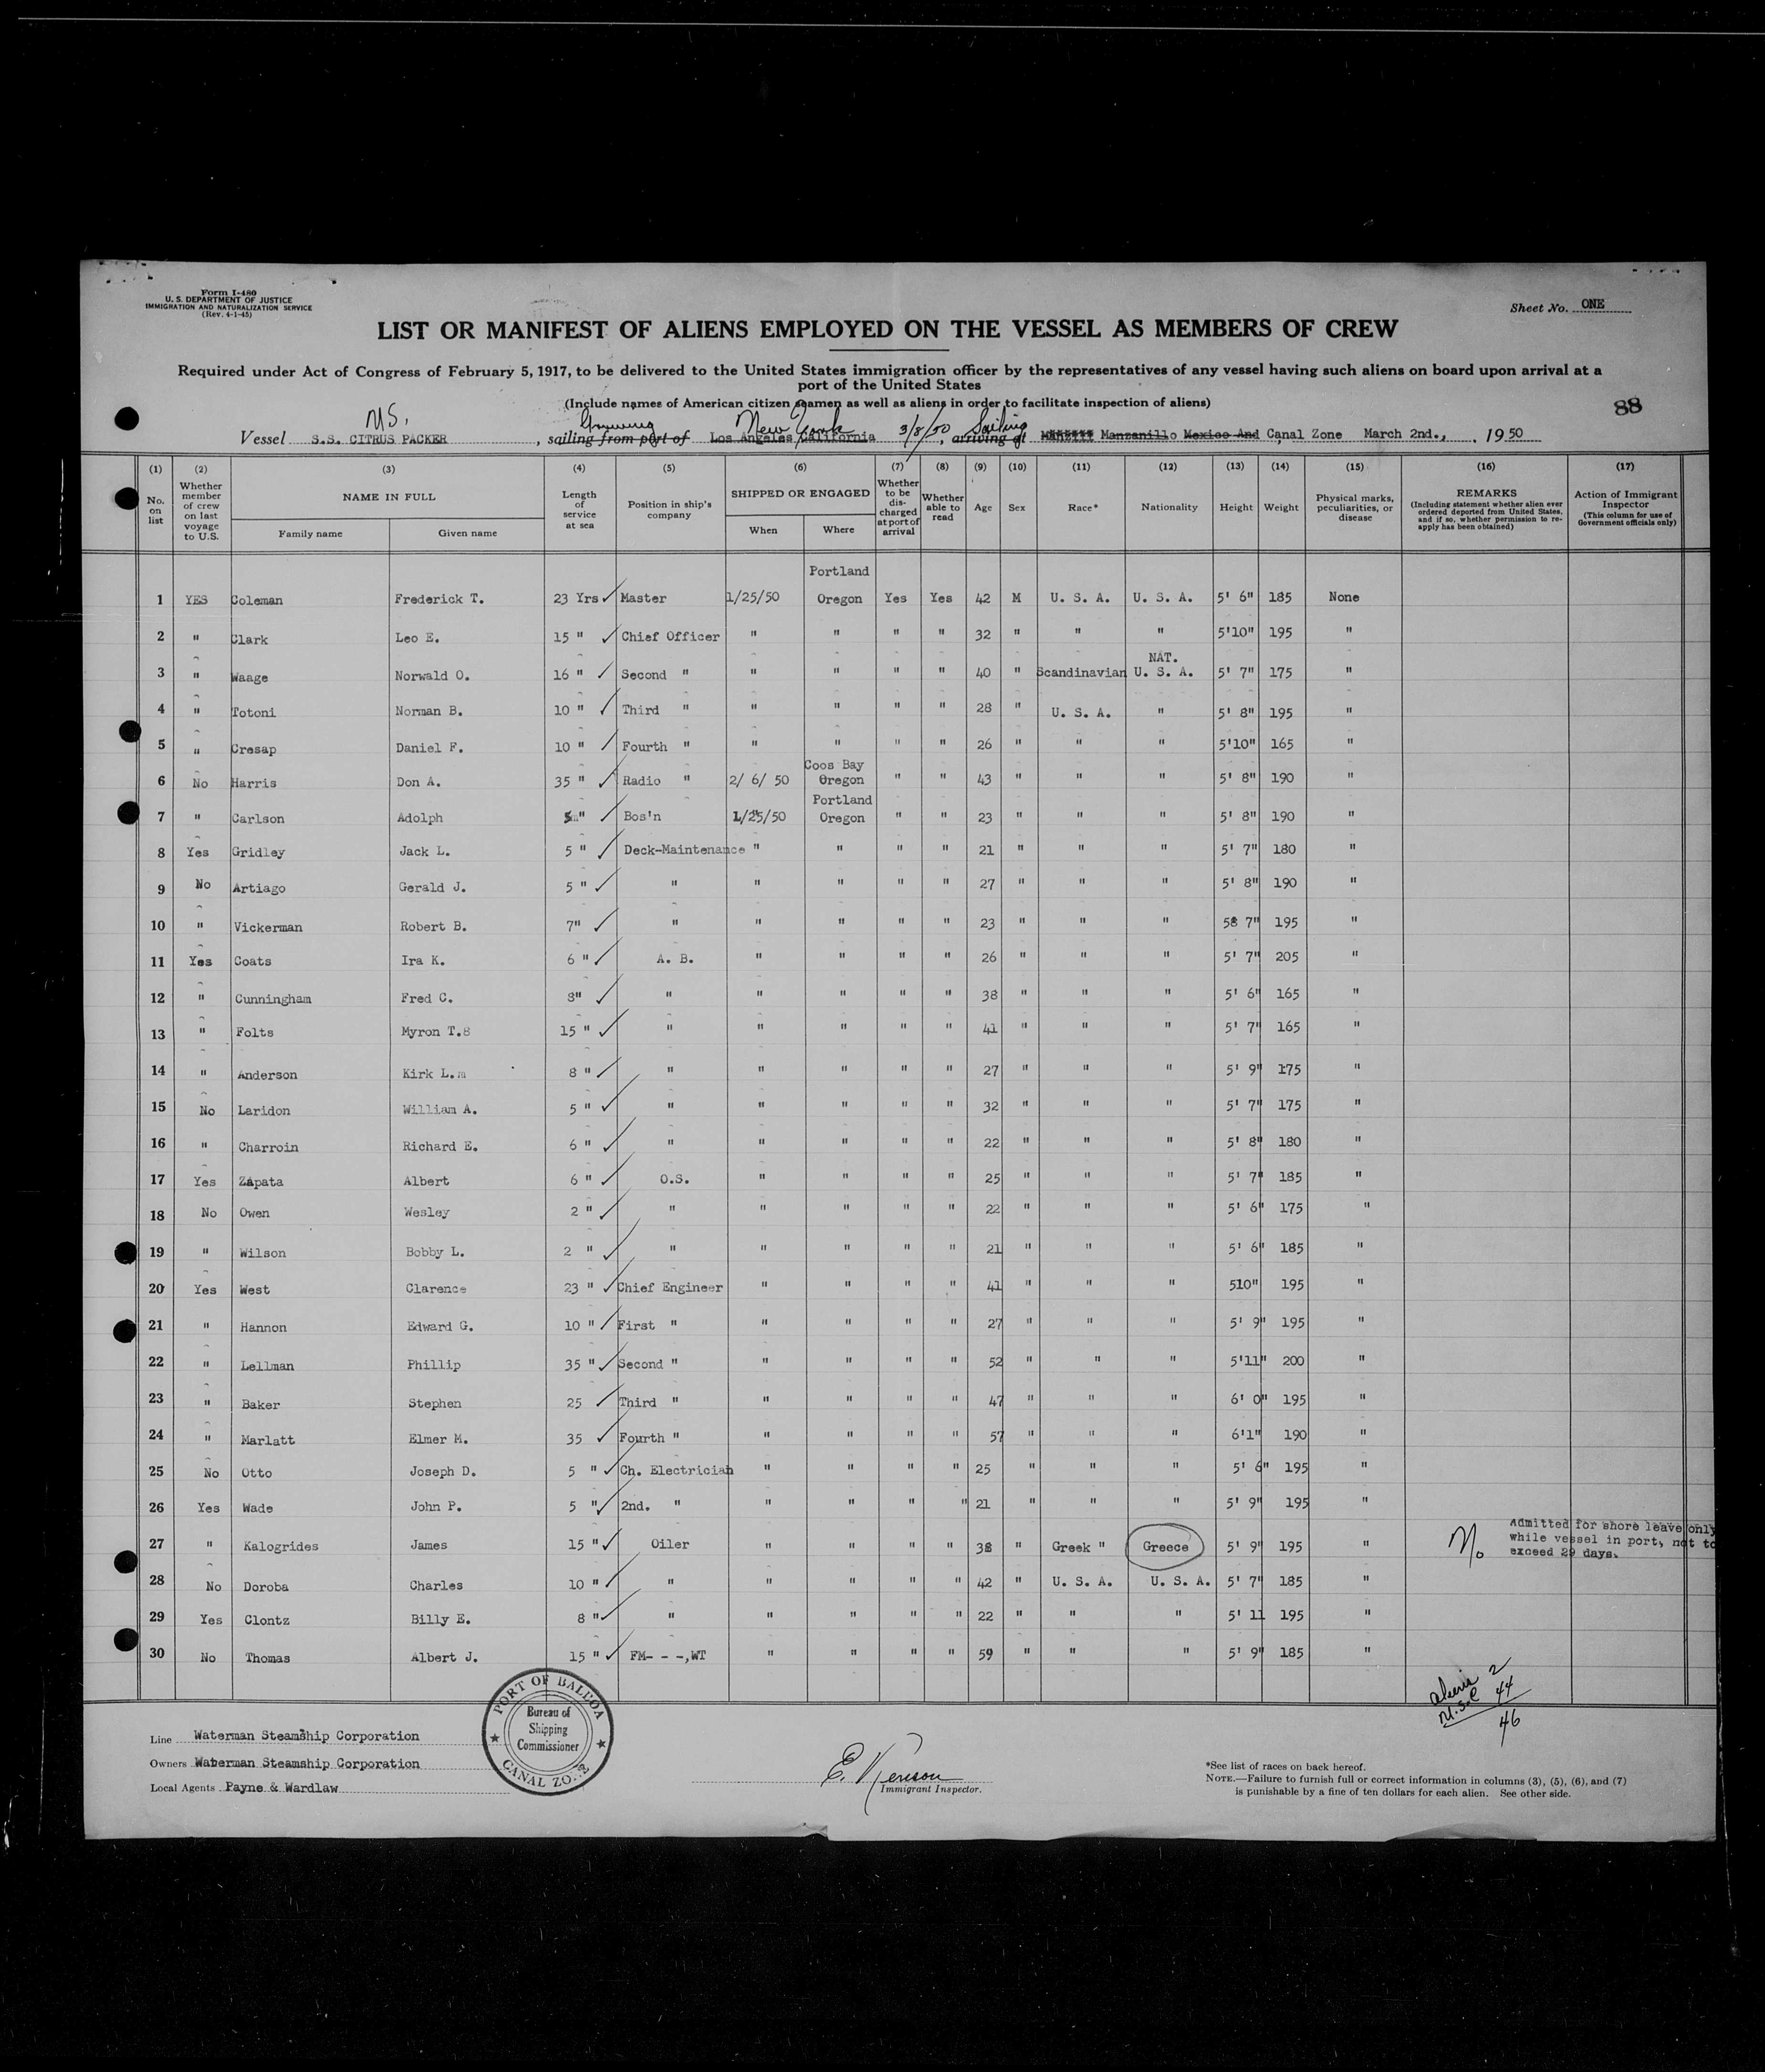 Form I-480
U. S. DEPARTMENT OF JUSTICE
IMMIGRATION AND NATURALIZATION SERVICE
(Rev. 4-1-45)
Sheet No. ONE
LIST OR MANIFEST OF ALIENS EMPLOYED ON THE VESSEL AS MEMBERS OF CREW
Required under Act of Congress of February 5, 1917, to be delivered to the United States immigration officer by the representatives of any vessel having such aliens on board upon arrival at a
port of the United States
(Include names of American citizen seamen as well as aliens in order to facilitate inspection of aliens)
88
US. New York 3/8/50 Sailing
Vessel S.S. CITRUS PACKER, sailing from port of Los Angeles, California, arriving at Manzanillo Mexico And Canal Zone March 2nd., 1950
(1) (2) (3) (4) (5) (6) (7) (8) (9) (10) (11) (12) (13) (14) (15) (16) (17)
No. on list
Whether member of crew on last voyage to U.S.
NAME IN FULL
Family name
Given name
Length of service at sea
Position in ship's company
SHIPPED OR ENGAGED
When
Where
Whether to be discharged at port of arrival
Whether able to read
Age
Sex
Race*
Nationality
Height
Weight
Physical marks, peculiarities, or disease
REMARKS
(Including statement whether alien ever ordered deported from United States, and if so, whether permission to re-apply has been obtained)
Action of Immigrant Inspector
(This column for use of Government officials only)
Portland
1 YES Coleman Frederick T. 23 Yrs ✓ Master 1/25/50 Oregon Yes Yes 42 M U. S. A. U. S. A. 5' 6" 185 None
2 " Clark Leo E. 15 " ✓ Chief Officer " " " " 32 " " " 5'10" 195 "
NAT.
3 " Waage Norwald O. 16 " ✓ Second " " " " " 40 " Scandinavian U. S. A. 5' 7" 175 "
4 " Totoni Norman B. 10 " ✓ Third " " " " " 28 " U. S. A. " 5' 8" 195 "
5 " Cresap Daniel F. 10 " ✓ Fourth " " " " " 26 " " " 5'10" 165 "
Coos Bay
6 No Harris Don A. 35 " ✓ Radio " 2/ 6/ 50 Oregon " " 43 " " " 5' 8" 190 "
Portland
7 " Carlson Adolph " ✓ Bos'n 1/25/50 Oregon " " 23 " " " 5' 8" 190 "
8 Yes Gridley Jack L. 5 " ✓ Deck-Maintenance " " " " 21 " " " 5' 7" 180 "
9 No Artiago Gerald J. 5 " ✓ " " " " " 27 " " " 5' 8" 190 "
10 " Vickerman Robert B. 7" ✓ " " " " " 23 " " " 58 7" 195 "
11 Yes Coats Ira K. 6 " ✓ A. B. " " " " 26 " " " 5' 7" 205 "
12 " Cunningham Fred C. 8" ✓ " " " " " 38 " " " 5' 6" 165 "
13 " Folts Myron T.8 15 " ✓ " " " " " 41 " " " 5' 7" 165 "
14 " Anderson Kirk L.m 8 " ✓ " " " " " 27 " " " 5' 9" 175 "
15 No Laridon William A. 5 " ✓ " " " " " 32 " " " 5' 7" 175 "
16 " Charroin Richard E. 6 " ✓ " " " " " 22 " " " 5' 8" 180 "
17 Yes Zapata Albert 6 " ✓ O.S. " " " " 25 " " " 5' 7" 185 "
18 No Owen Wesley 2 " ✓ " " " " " 22 " " " 5' 6" 175 "
19 " Wilson Bobby L. 2 " ✓ " " " " " 21 " " " 5' 6" 185 "
20 Yes West Clarence 23 " ✓ Chief Engineer " " " " 41 " " " 510" 195 "
21 " Hannon Edward G. 10 " ✓ First " " " " " 27 " " " 5' 9" 195 "
22 " Lellman Phillip 35 " ✓ Second " " " " " 52 " " " 5'11" 200 "
23 " Baker Stephen 25 ✓ Third " " " " " 47 " " " 6' 0" 195 "
24 " Marlatt Elmer M. 35 ✓ Fourth " " " " " 57 " " " 6'1" 190 "
25 No Otto Joseph D. 5 " ✓ Ch. Electrician " " " " 25 " " " 5' 6" 195 "
26 Yes Wade John P. 5 " ✓ 2nd. " " " " " 21 " " " 5' 9" 195 "
27 " Kalogrides James 15 " ✓ Oiler " " " " 38 " Greek " Greece 5' 9" 195 " No Admitted for shore leave only
while vessel in port, not to
exceed 29 days.
28 No Doroba Charles 10 " ✓ " " " " " 42 " U. S. A. U. S. A. 5' 7" 185 "
29 Yes Clontz Billy E. 8 " ✓ " " " " " 22 " " " 5' 11 195 "
30 No Thomas Albert J. 15 " ✓ FM- - -,WT " " " " 59 " " " 5' 9" 185 "
Aliens 2
U.S.C 44
46
PORT OF BALBOA
Bureau of
Shipping
Commissioner
CANAL ZONE
Line Waterman Steamship Corporation
Owners Waterman Steamship Corporation
Local Agents Payne & Wardlaw
Immigrant Inspector.
*See list of races on back hereof.
NOTE.—Failure to furnish full or correct information in columns (3), (5), (6), and (7)
is punishable by a fine of ten dollars for each alien. See other side.